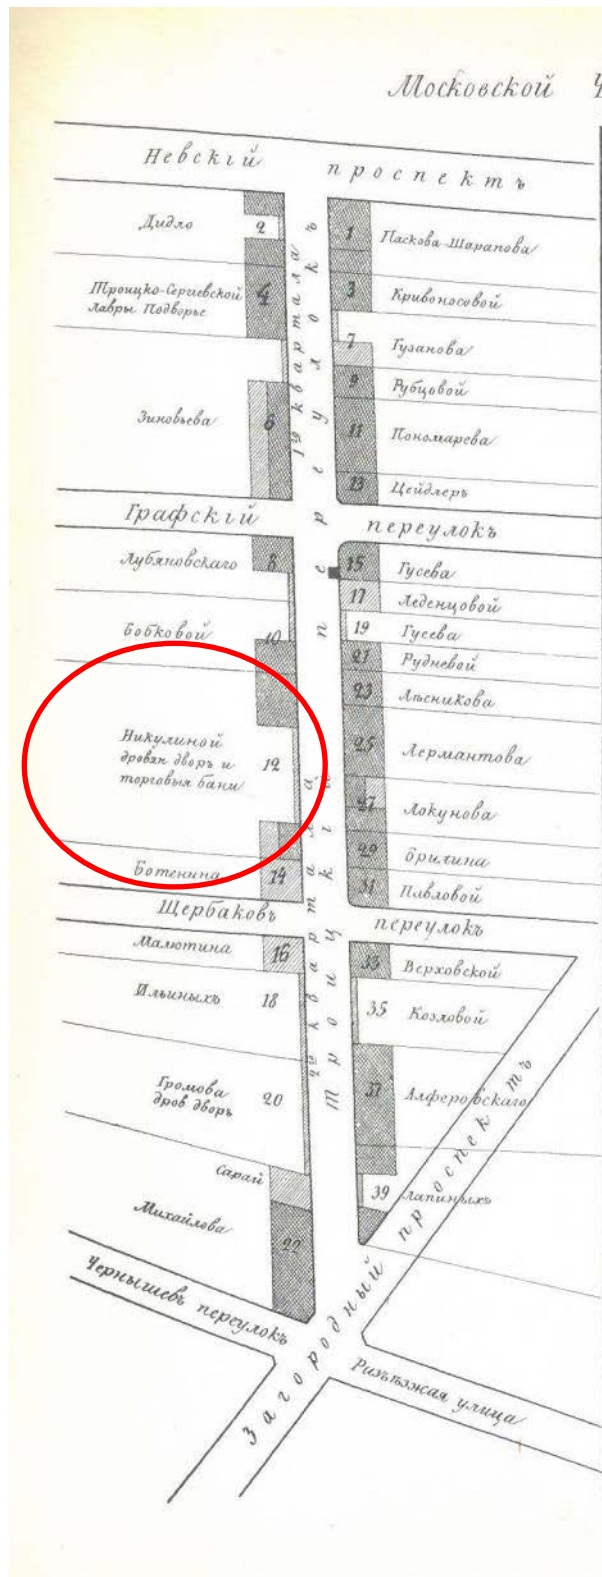 Московской Ч
Невскій проспектъ
Дидло 2
Троицко-Сергіевской
лавры Подворье 4
Зиновьева 6
1го квартала
1 Паскова-Шарапова
3 Кривоносовой
7 Гузанова
9 Рубцовой
11 Пономарева
13 Цейдлеръ
Графскій переулокъ
Лубяновскаго 8
Бобковой 10
Никулиной
дровян дворъ и 12
торговыя бани
Ботенина 14
2го квартала
Троицкій переулокъ
15 Гусева
17 Леденцовой
19 Гусева
21 Рудневой
23 Лѣсникова
25 Лермантова
27 Локунова
29 Брилина
31 Павловой
Щербаковъ переулокъ
Малютина 16
Ильиныхъ 18
Громова 20
дров дворъ
Сарай
Михайлова 22
33 Верховской
35 Козловой
37 Алферовскаго
39 Лапиныхъ
Чернышевъ переулокъ
Загородный проспектъ
Разъѣзжая улица